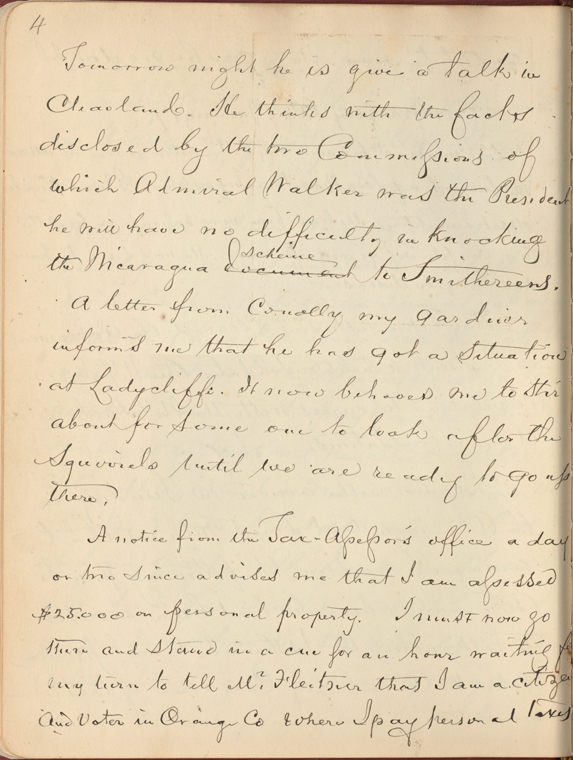 4
Tomorrow night he is give a talk in
Cleaoland. He thinks with the facts
disclosed by the two Commissions of
which Admiral Walker was the President
he will have no difficulty in knocking
scheme
the Nicaragua document to Smithereens.
A letter from Conolly my gardner
informs me that he has got a situation
at Ladycliffe. It now behooves me to stir
about for some one to look after the
Squirrels until we are ready to go up
there.
A notice from the Tax-Assessor's office a day
or two since advises me that I am assessed
$25.000 on personal property. I must now go
there and stand in a cue for an hour waiting
my turn to tell Mr. Fleitner that I am a citizen
and voter in Orange Co where I pay personal Taxes